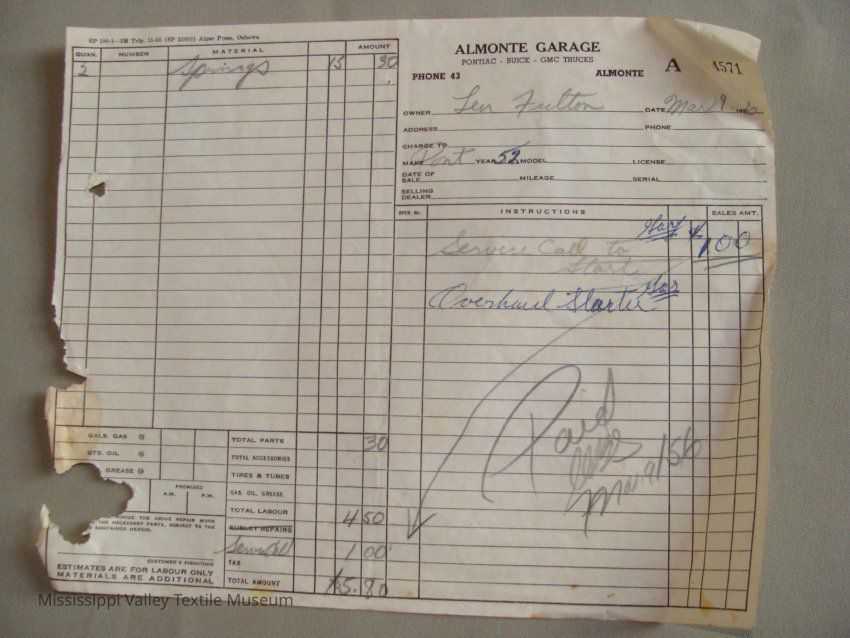 SP 198-1—2M Trip. 11-55 (SP 22952) Alger Press, Oshawa
QUAN. NUMBER MATERIAL AMOUNT
2 Springs 15 30
ALMONTE GARAGE
PONTIAC - BUICK - GMC TRUCKS
PHONE 43 ALMONTE A 4571
OWNER Len Fulton DATE Mar 9 195
ADDRESS PHONE
CHARGE TO
MAKE Pont YEAR 52 MODEL LICENSE
DATE OF SALE MILEAGE SERIAL
SELLING DEALER
OPER. No. INSTRUCTIONS SALES AMT.
Service Call to $1.00
Start
Overhaul Starter
Paid
Mar 9/56
GALS. GAS @
QTS. OIL @
GREASE @
PROMISED
A.M. P.M.
THE ABOVE REPAIR WORK
THE NECESSARY PARTS, SUBJECT TO THE
CONTAINED HEREIN.
CUSTOMER'S SIGNATURE
ESTIMATES ARE FOR LABOUR ONLY
MATERIALS ARE ADDITIONAL
TOTAL PARTS 30
TOTAL ACCESSORIES
TIRES & TUBES
GAS, OIL, GREASE
TOTAL LABOUR 4 50
SUBLET REPAIRS
Service Call 1 00
TAX
TOTAL AMOUNT 5.80
Mississippi Valley Textile Museum